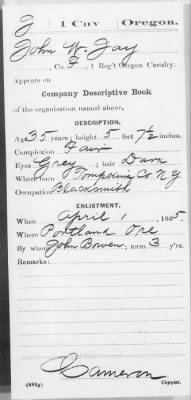 J 1 Cav Oregon.
John W. Jay
, Co. F, 1 Reg't Oregon Cavalry.
Appears on
Company Descriptive Book
of the organization named above.
DESCRIPTION.
Age 35 years; height 5 feet 7½ inches.
Complexion Fair
Eyes Grey; hair Dark
Where born Tompkins Co. N.Y
Occupation Blacksmith
ENLISTMENT.
When April 1, 1865.
Where Portland Ore
By whom John Bowen; term 3 y'rs.
Remarks:
Cameron
(383g) Copyist.